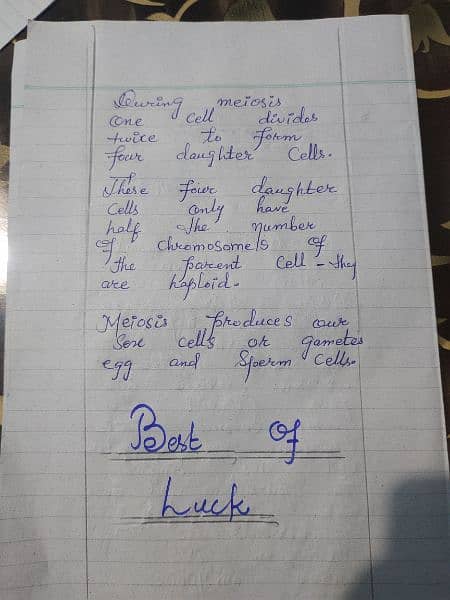 During meiosis
one cell divides
twice to form
four daughter cells.
These four daughter
cells only have
half the number
of chromosomels of
the parent cell - they
are haploid.
Meiosis produces our
Sex cells or gametes
egg and Sperm cells.
Best of
Luck